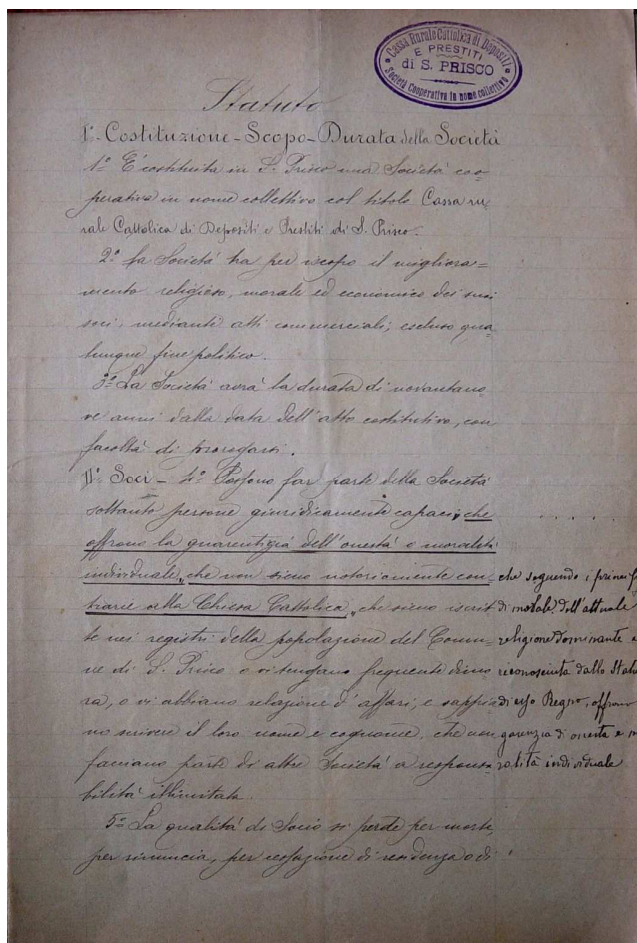 Cassa Rurale Cattolica di Depositi
E PRESTITI
di S. PRISCO
Società Cooperativa in nome collettivo
Statuto
I° - Costituzione - Scopo - Durata della Società
1° È costituita in S. Prisco una Società coo-
perativa in nome collettivo col titolo Cassa ru-
rale Cattolica di Depositi e Prestiti di S. Prisco.
2° La Società ha per iscopo il migliora=
mento religioso, morale ed economico dei suoi
soci, mediante atti commerciali; escluso qua-
lunque fine politico.
3° La Società avrà la durata di novantano-
ve anni dalla data dell'atto costitutivo, con
facoltà di prorogarsi.
II° Soci - 4° Possono far parte della Società
soltanto persone giuridicamente capaci, che
offrono la guarentigia dell'onestà e moralità
individuale, che non sieno notoriamente con-
trarie alla Chiesa Cattolica, che sieno iscrit-
te nei registri della popolazione del Comu-
ne di S. Prisco o vi tengano frequente dimo
ra, o vi abbiano relazione d'affari, e sappia
no scrivere il loro nome e cognome, che non
facciano parte di altre Società a responsa
bilità illimitata.
5° La qualità di Socio si perde per morte,
per rinuncia, per cessazione di residenza o di
che seguendo i principi
di morale dell'attuale
religione dominante e
riconosciuta dallo Stato
di esso Regno, offrono
garanzia di onestà e mo
ralità individuale